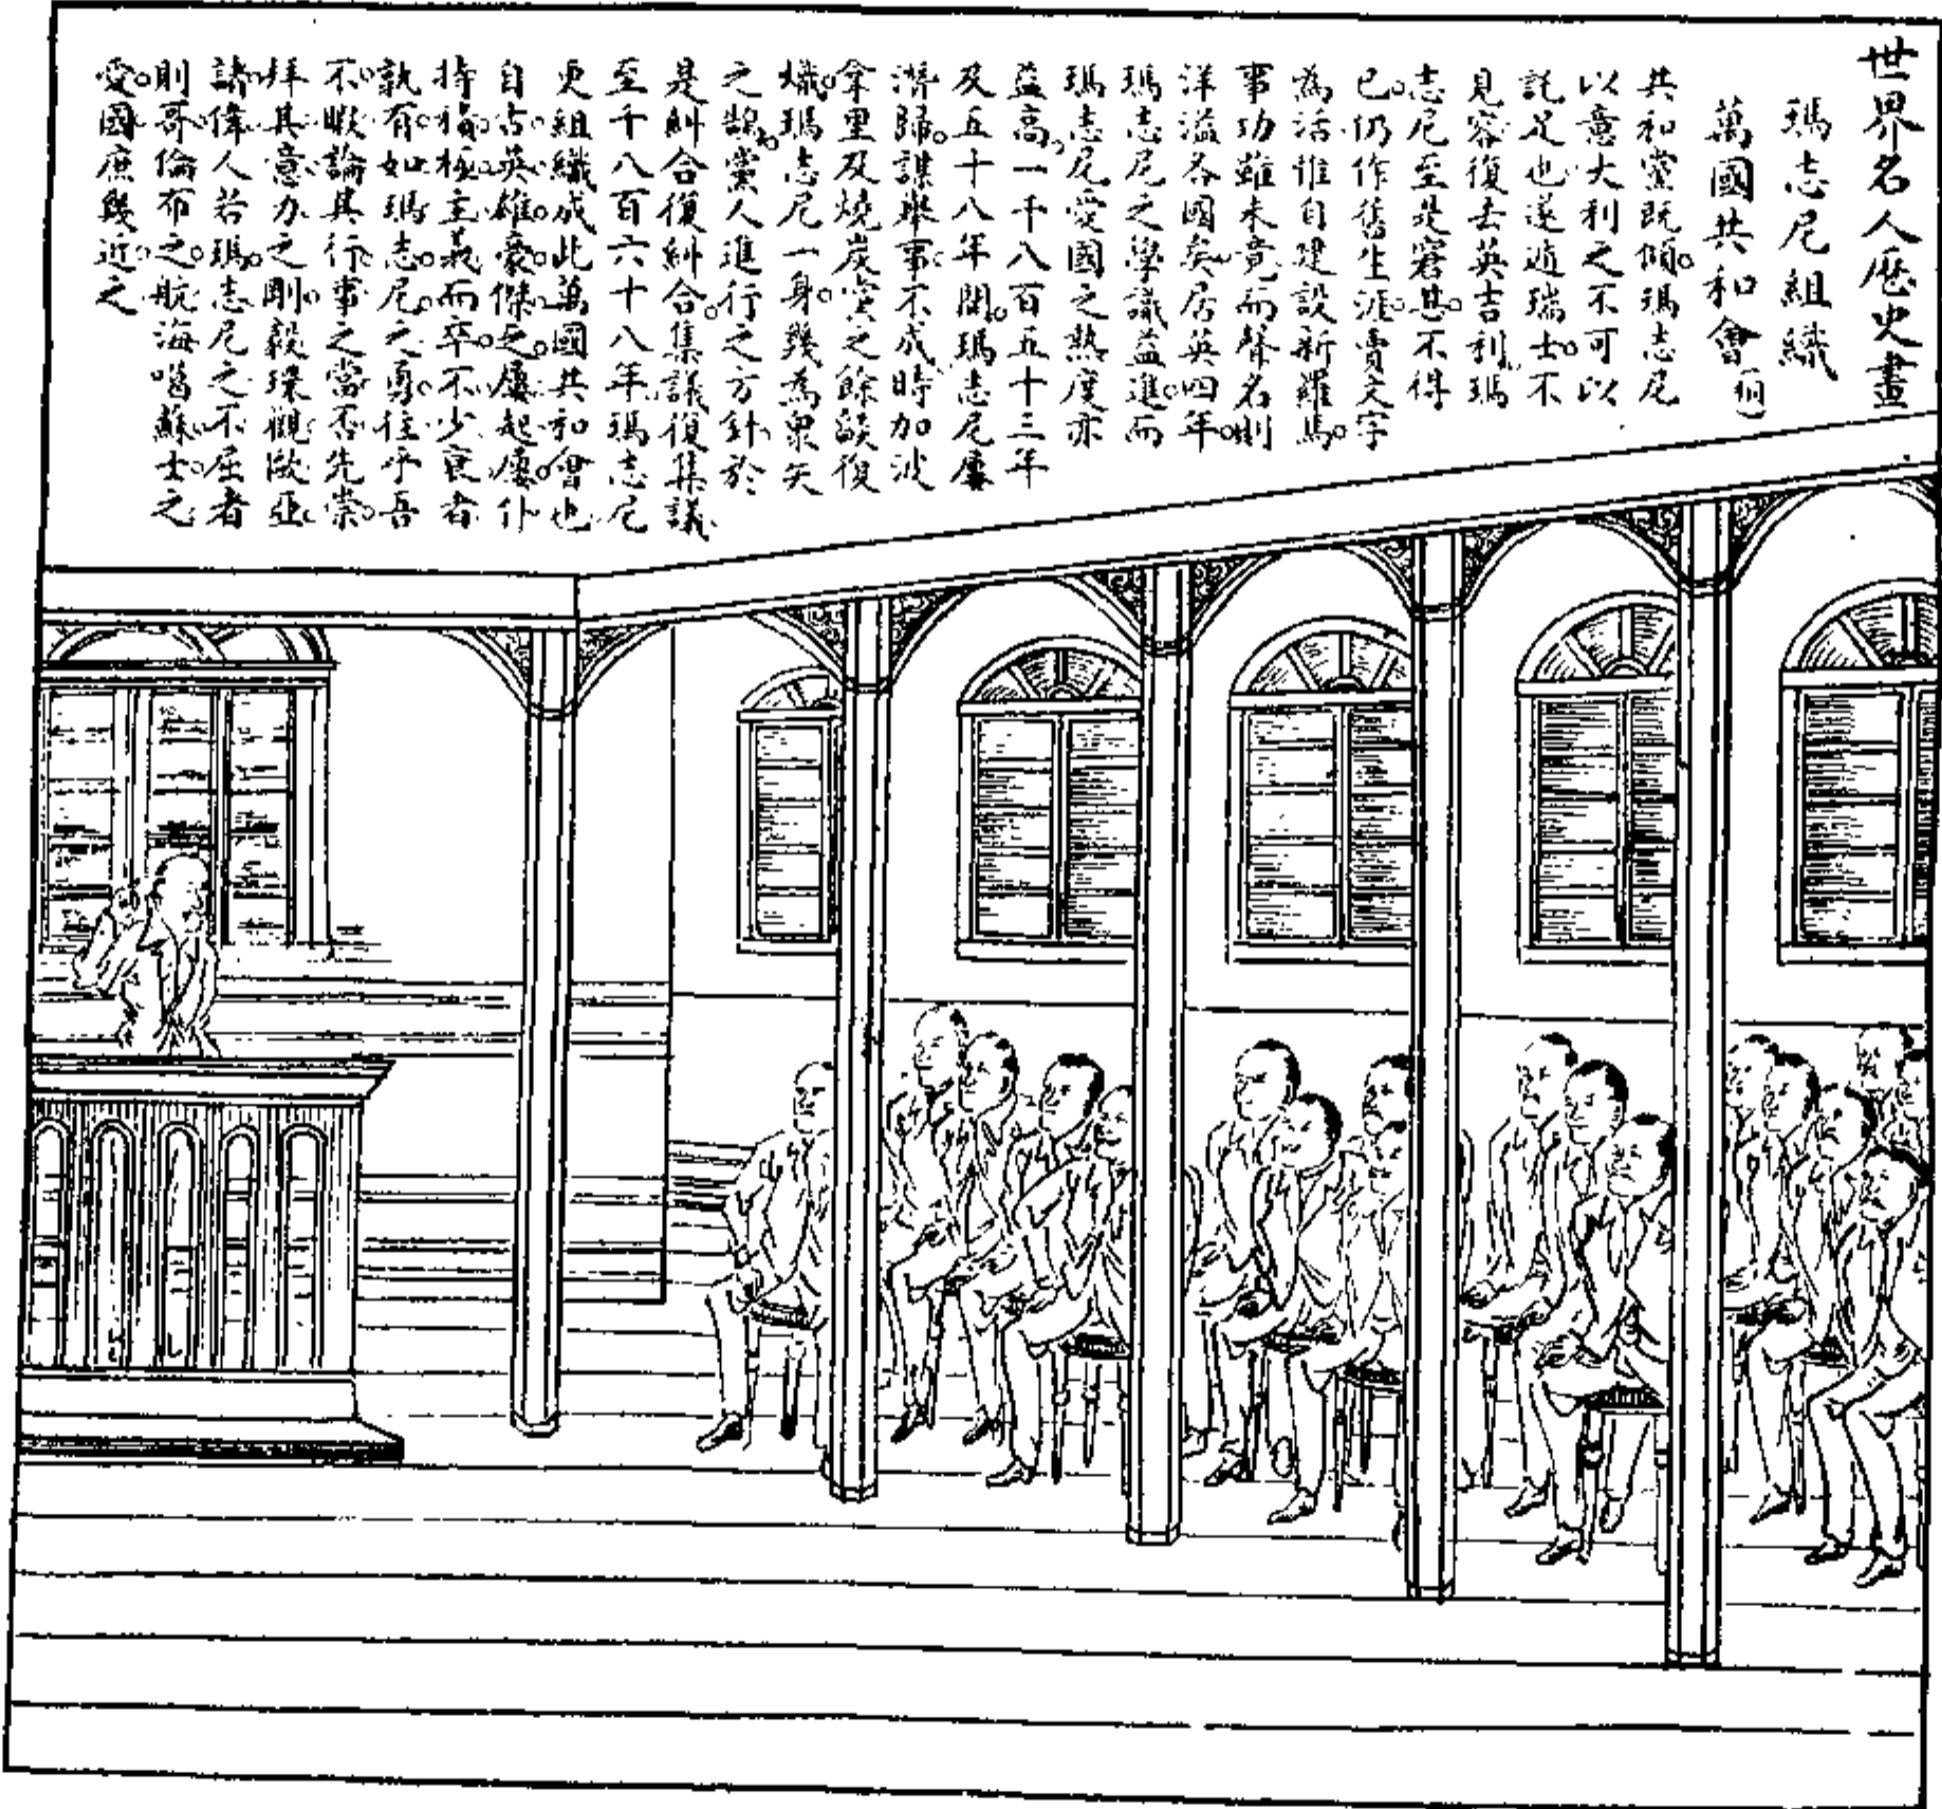 世界名人歷史畫
瑪志尼組織
萬國共和會
共和黨既傾。瑪志尼
以意大利之不可以
託足也遂遁瑞士。不
見容復去英吉利、瑪
志尼至是窘甚。不得
已。仍作舊生涯。賣文字
為活誰自建設新羅馬。
事功雖未竟、而聲名則
洋溢各國矣。居英四年。
瑪志尼之學識益進。而
瑪志尼愛國之熱度亦
益高、一千八百五十三年
及五十八年間。瑪志尼屢
潛歸。謀舉事。不成時加波
拿里及燒炭黨之餘燄復
熾。瑪志尼一身。幾為眾矢
之鵠。黨人進行之方針、於
是糾合復糾合。集議復集議、
至千八百六十八年瑪志尼
更組織成此萬國共和會也
自古英雄豪傑之屢起屢仆
持積極主義而卒不少衰者
孰有如瑪志尼之勇往乎吾
不暇論其行事之當否先崇
拜其意力之剛毅環觀歐亞
諸偉人若瑪志尼之不屈者
則哥倫布之航海噶蘇士之
愛國庶幾近之